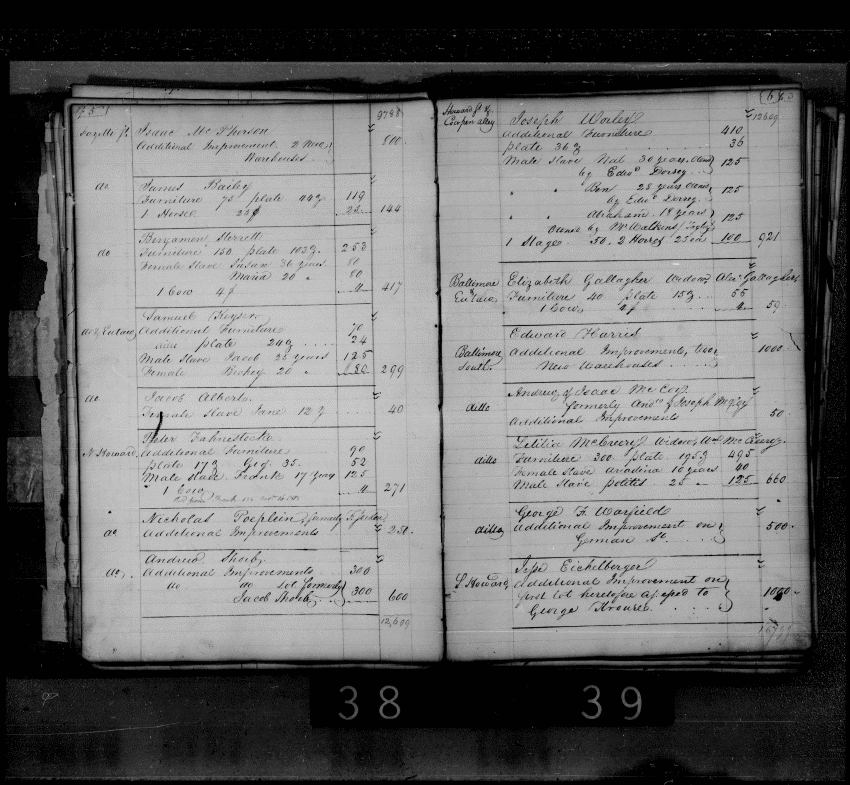 9788
Fayette St. Isaac McPherson
Additional Improvement 2 New
Warehouses 800
do James Bailey
Furniture 75 plate 44 119
1 Horse 25 25 144
do Benjamin Sterrett
Furniture 150 plate 103 253
Female Slave Susan 36 years 80
Maria 20 " 80
1 Cow 4 4 417
Samuel Keyser
do & Eutaw Additional Furniture 70
plate 24 24
Male Slave Jacob 25 years 125
Female 20 " 80 299
do Jacob Alberts
Female Slave Jane 12 40
Peter Fahnestock
N Howard Additional Furniture 90
plate 17 Gig 35. 52
Male Slave Frank 17 years 125
1 Cow 4 271
Nicholas Poeplein formerly
do Additional Improvements 250
Andrew Shorb
do Additional Improvements 300
do do Lot formerly
Jacob Shorb 300 600
12,609
Howard St &
Cowpen alley Joseph Worley 12609
Additional Furniture 410
plate 36 36
Male Slave Nat 30 years Owned
by Edwd Dorsey 125
" " Ben 28 years Owned
by Edwd Dorsey 125
" " Abraham 18 years
Owned by Watkins 125
1 Stage 50. 2 Horses 25 ea 100 921
Baltimore Elizabeth Gallagher Widow Alexr Gallaghers
Eutaw Furniture 40 plate 15 55
1 Cow 4 4 59
Edward Harris
Baltimore Additional Improvements, two 1000
South New Warehouses
Andrew & Isaac McCoy
ditto formerly Andw & Joseph
Additional Improvements 50
Letitia McCreery Widow Wm McCreery
ditto Furniture 300 plate 195 495
Female Slave Ariadina 16 years 40
Male Slave 25 " 125 660
George F. Warfield
ditto Additional Improvement on 500
German St.
Jesse Eichelberger
S Howard Additional Improvement on
first lot heretofore assessed to 1000
George Krouse
38 39